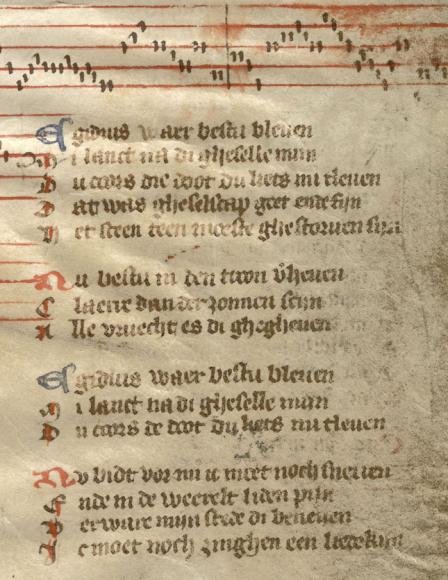 Egidius waer bestu bleuen
Mi lanct na di gheselle mijn
Du coors die doot du liets mi tleuen
Dat was gheselscap goet ende fijn
Het sceen teen moeste ghestoruen sijn
Nu bestu in den troon v'heuen
Claerre dan der zonnen scijn
Alle vruecht es di ghegheuen
Egidius waer bestu bleuen
Mi lanct na di gheselle mijn
Du coors de doot du liets mi tleuen
Nv bidt vor mi ic moet noch sneuen
Ende in de weerelt liden pijn
Verware mijn stede di beneuen
Ic moet noch zinghen een liedekijn